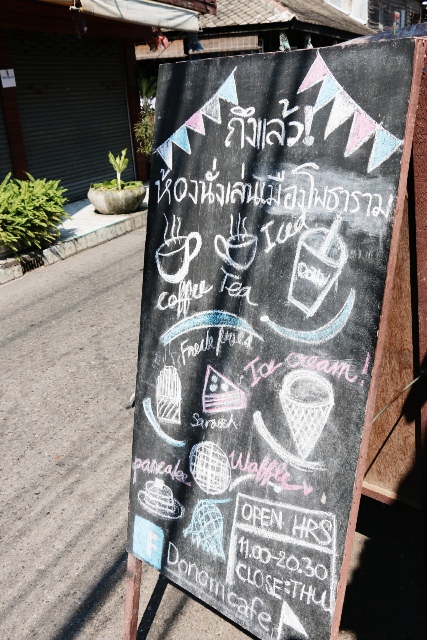 ถึงแล้ว!
ห้องนั่งเล่นเมืองโพธาราม
Iced
coffee Tea
Fresh fruied
Ice cream!
pancake Waffle
OPEN HRS
11.00-20.30
CLOSE:THU
f
Donomcafe